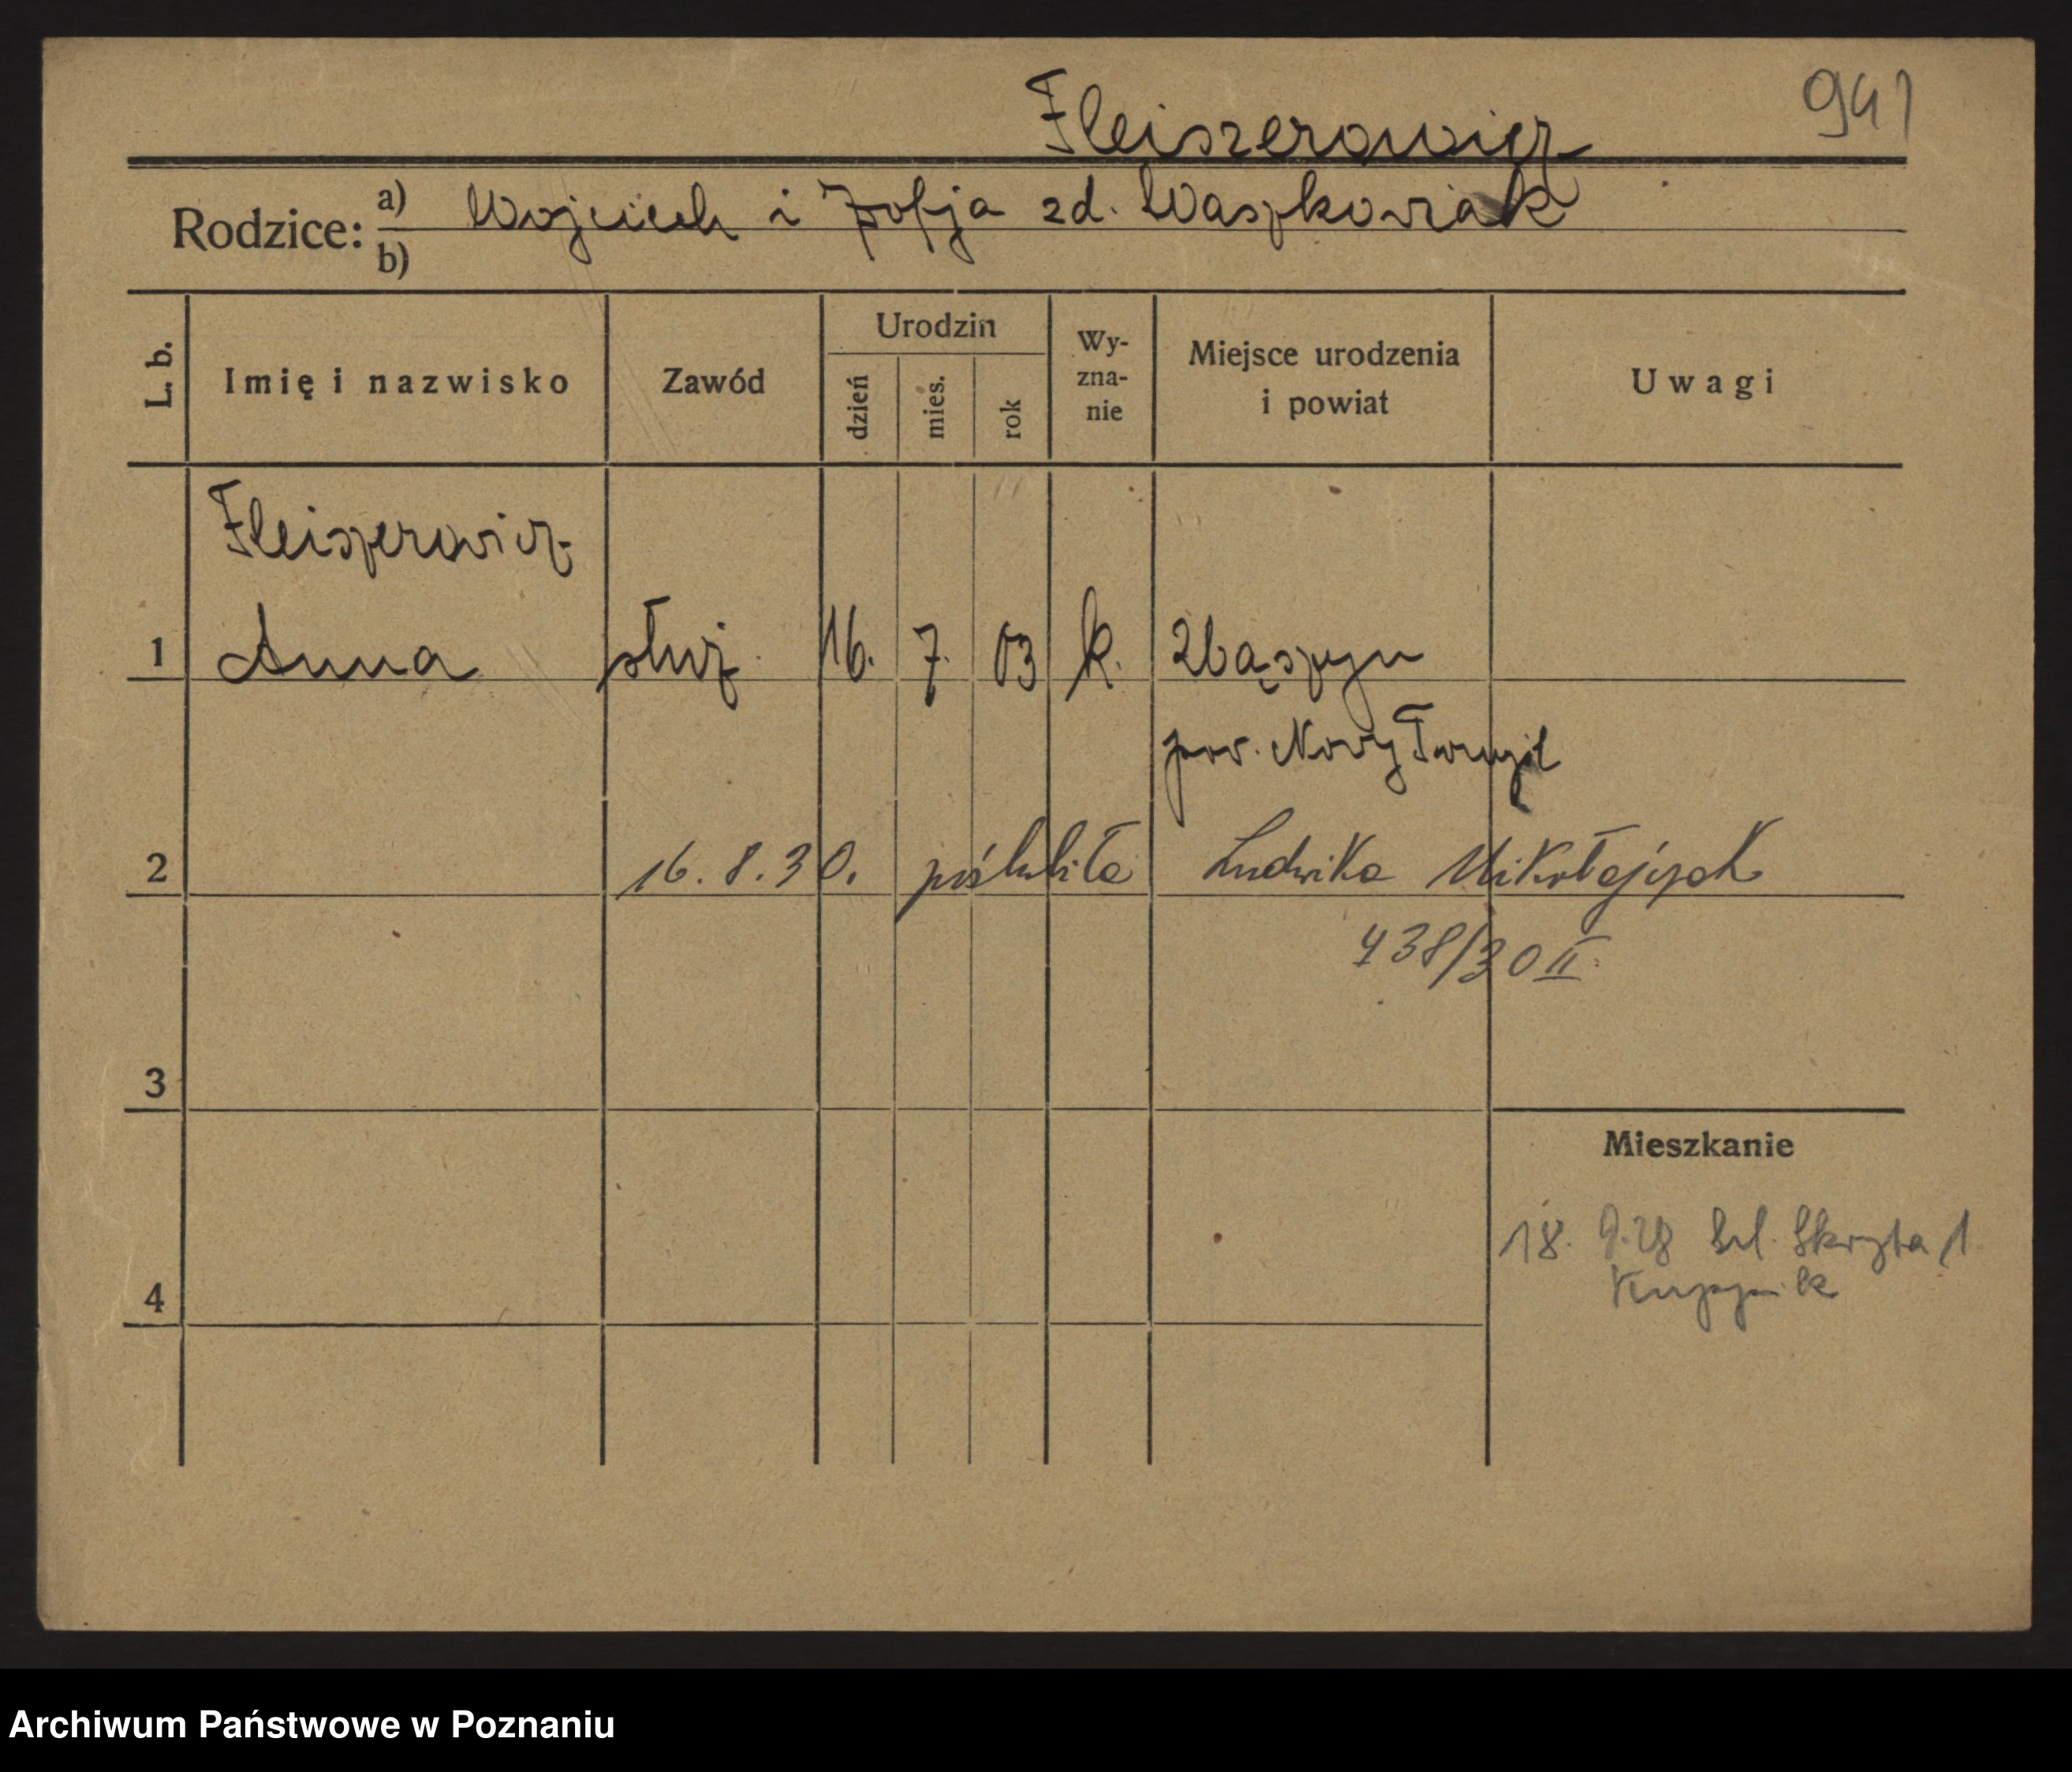 941
Fleiszerowicz
Rodzice: a) Wojciech i Zofja zd. Waszkowiak
b)
L. b. Imię i nazwisko Zawód Urodzin dzień mies. rok Wy-zna-nie Miejsce urodzenia i powiat Uwagi
Fleiszerowicz
1 Anna służ. 16. 7. 03 k. Zbąszyn
pow. Nowy Tomyśl
2 16. 8. 30. poślubiła Ludwika Mikołajczak
438/30 II.
3
Mieszkanie
18. 9.28 Skryta 1
4
Archiwum Państwowe w Poznaniu